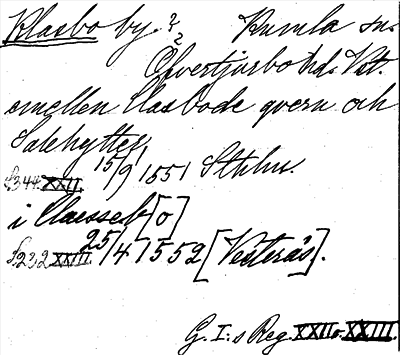 Klasbo by. ? Kumla sn.
2 Öfvertjurbo hd. Vst.
emellen Clasbode qvern och
Salehyttes
S. 344. XXII. 15/9 1551 Sthlm.
i Claesseb[o]
S. 232 XXIII. 25/4 1552 [Vesterås].
G. I:s Reg. XXII o. XXIII.